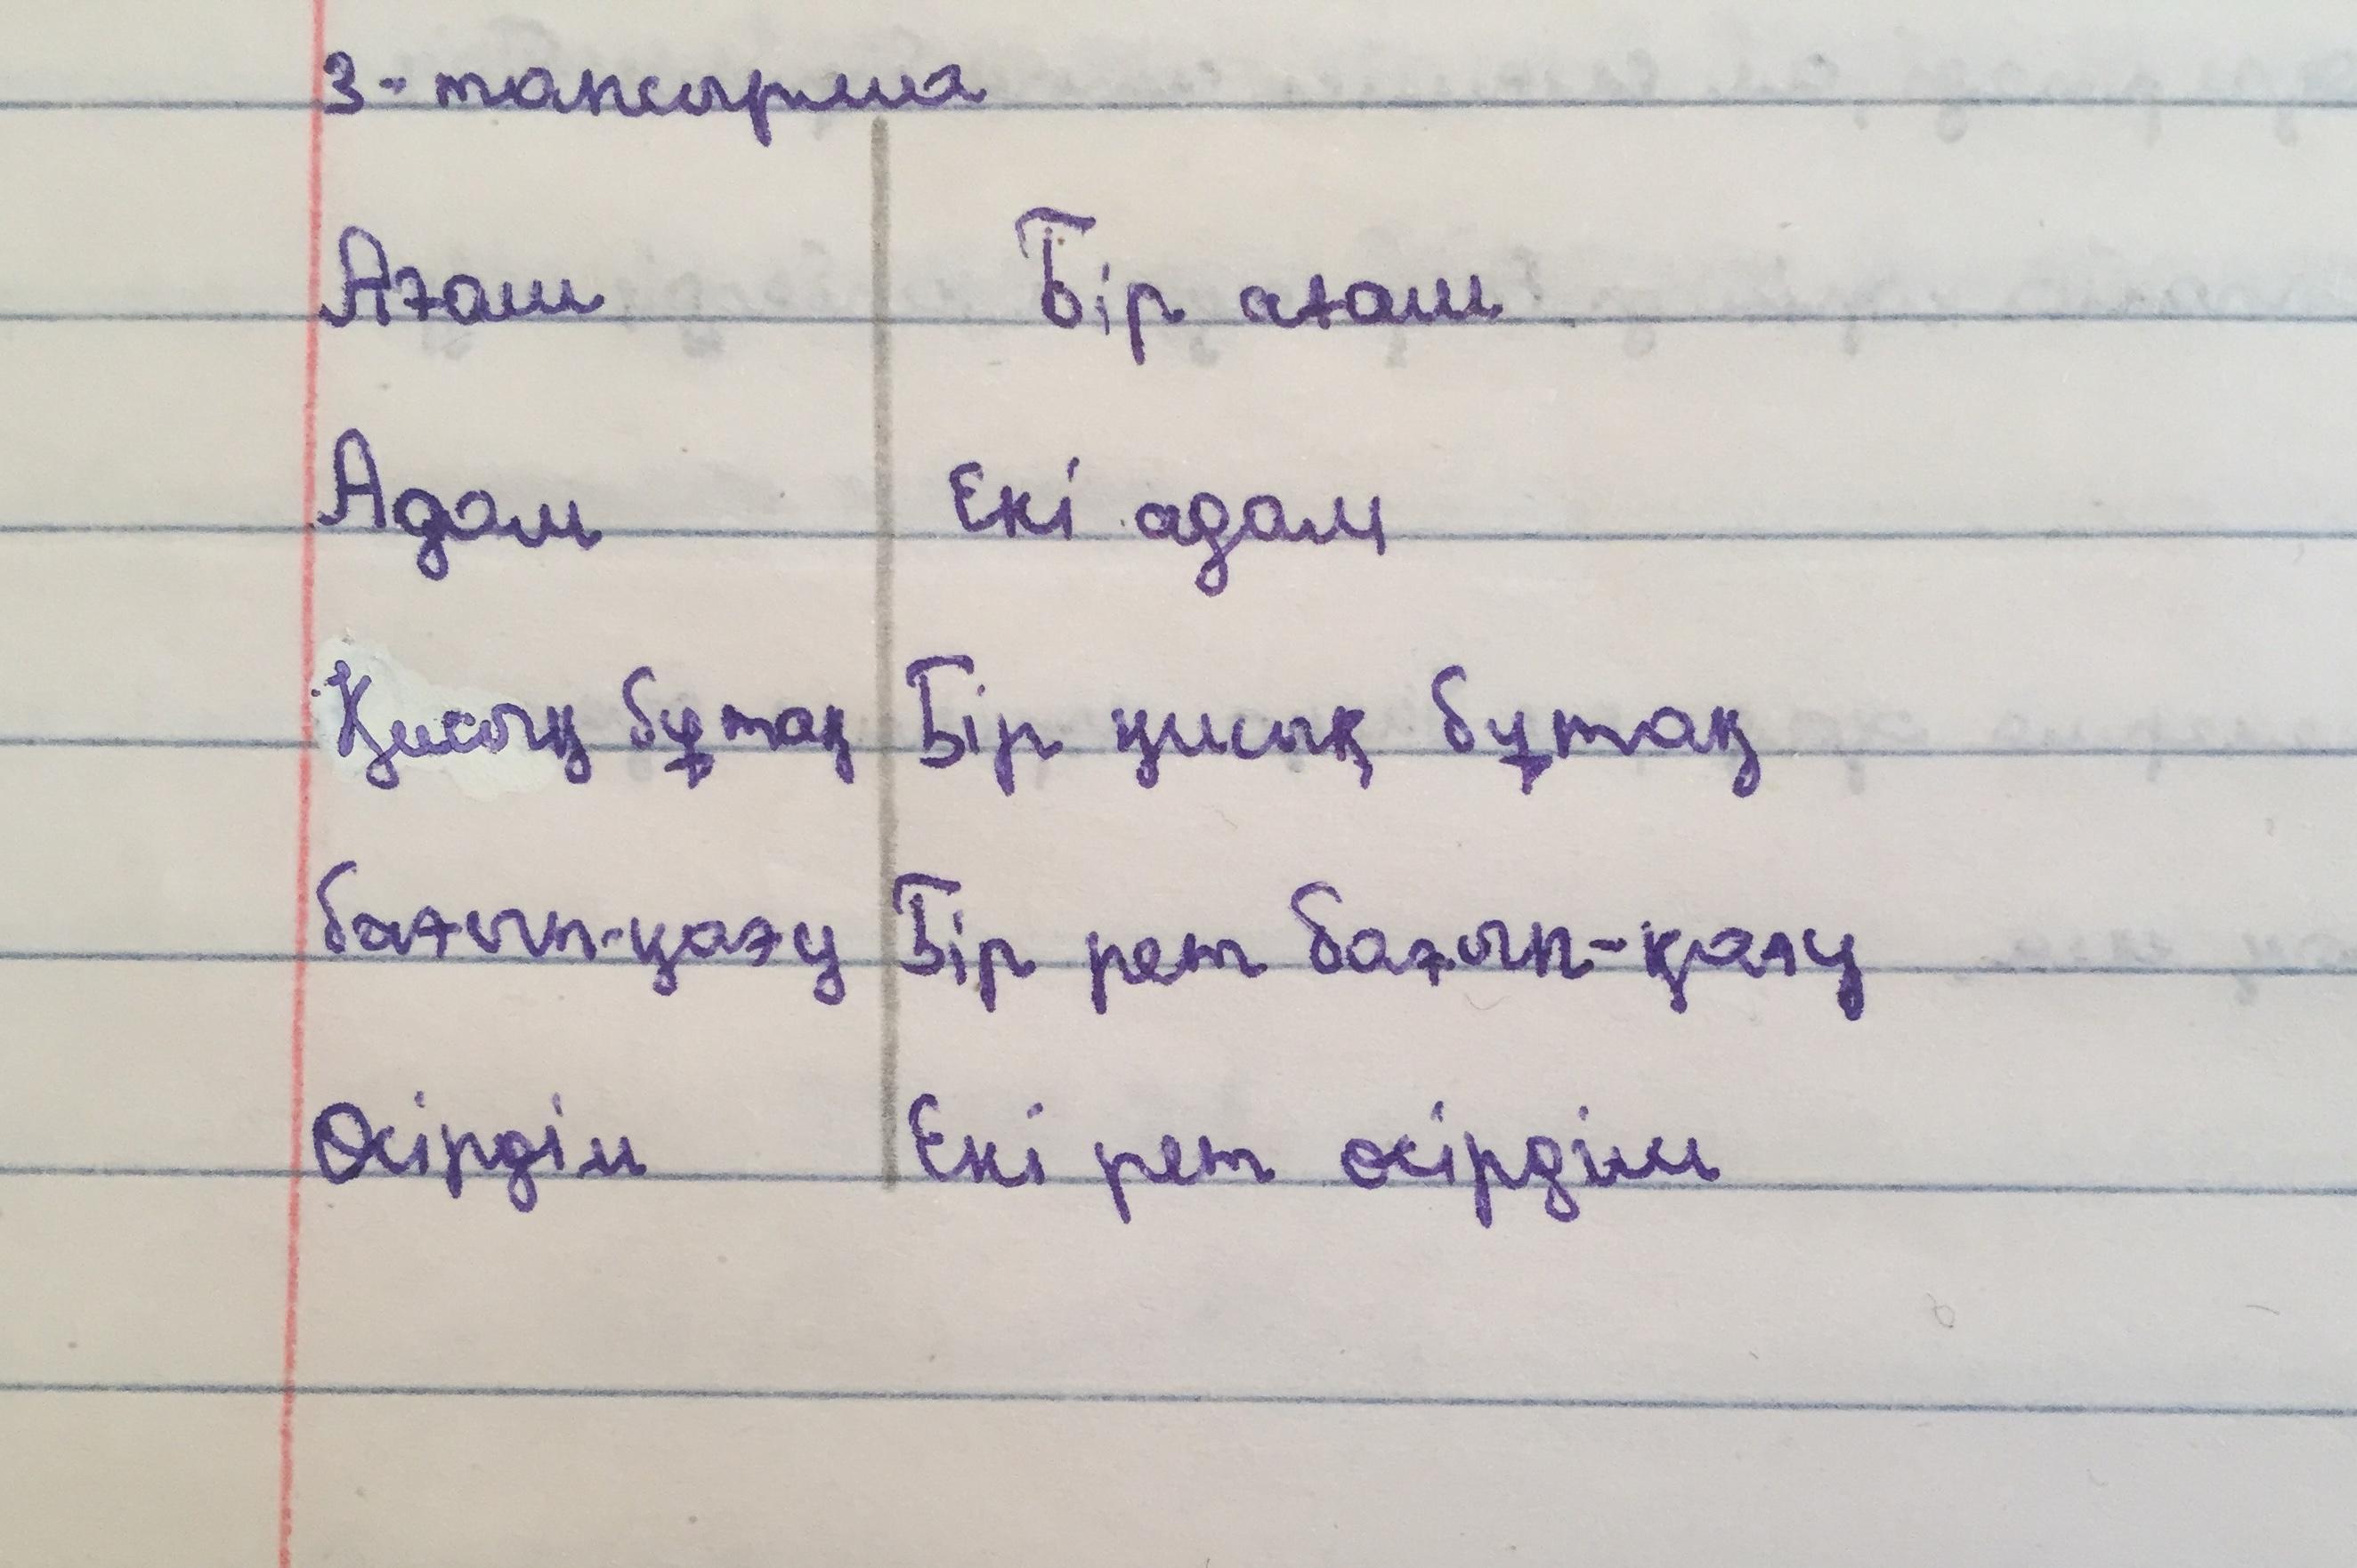 3-тапсырма
Ағаш Бір ағаш
Адам Екі адам
Қисық бұтақ Бір қисық бұтақ
бағып-қағу Бір рет бағып-қағу
Өсірдім Екі рет өсірдім